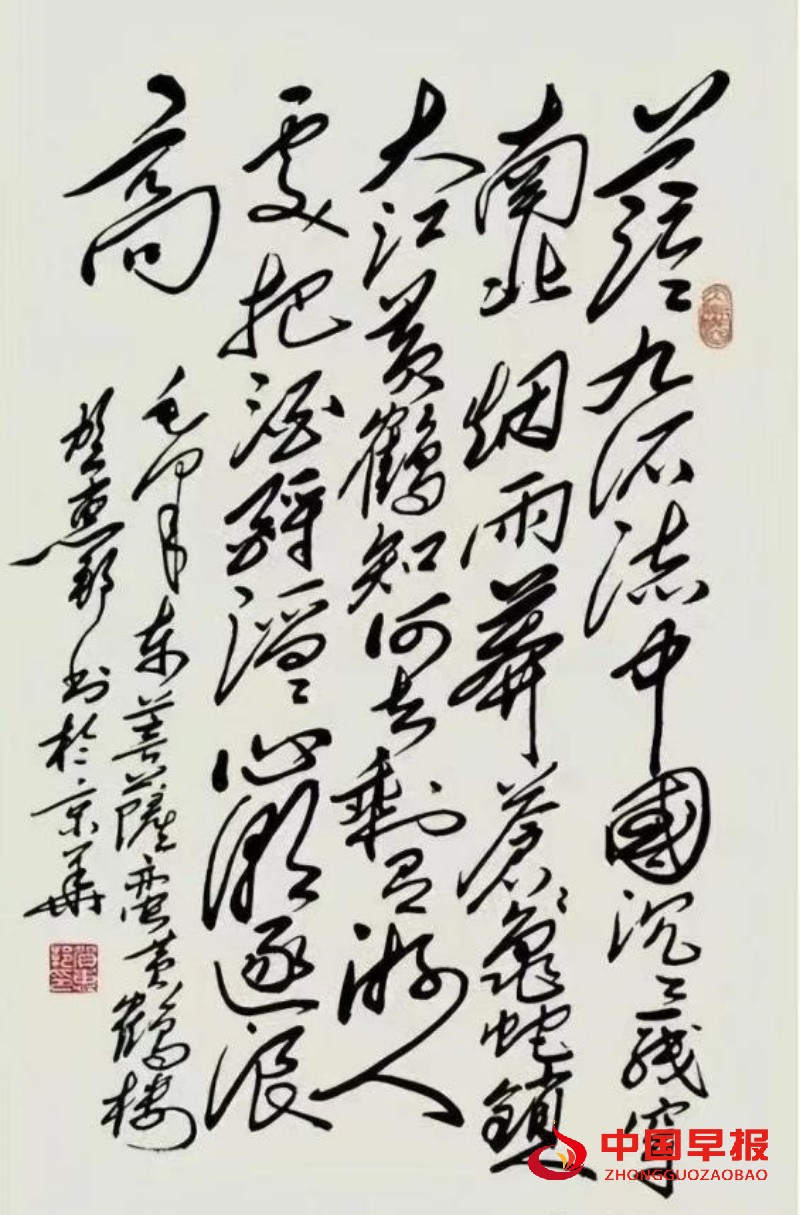 茫〻九派流中國沉〻一綫穿
南北烟雨莽蒼〻龜蛇鎖
大江黄鶴知何去剩有游人
處把酒酹滔〻心潮逐浪
高
毛泽东菩薩蛮黄鶴楼
惠邦书於京華
中国早报
ZHONGGUOZAOBAO